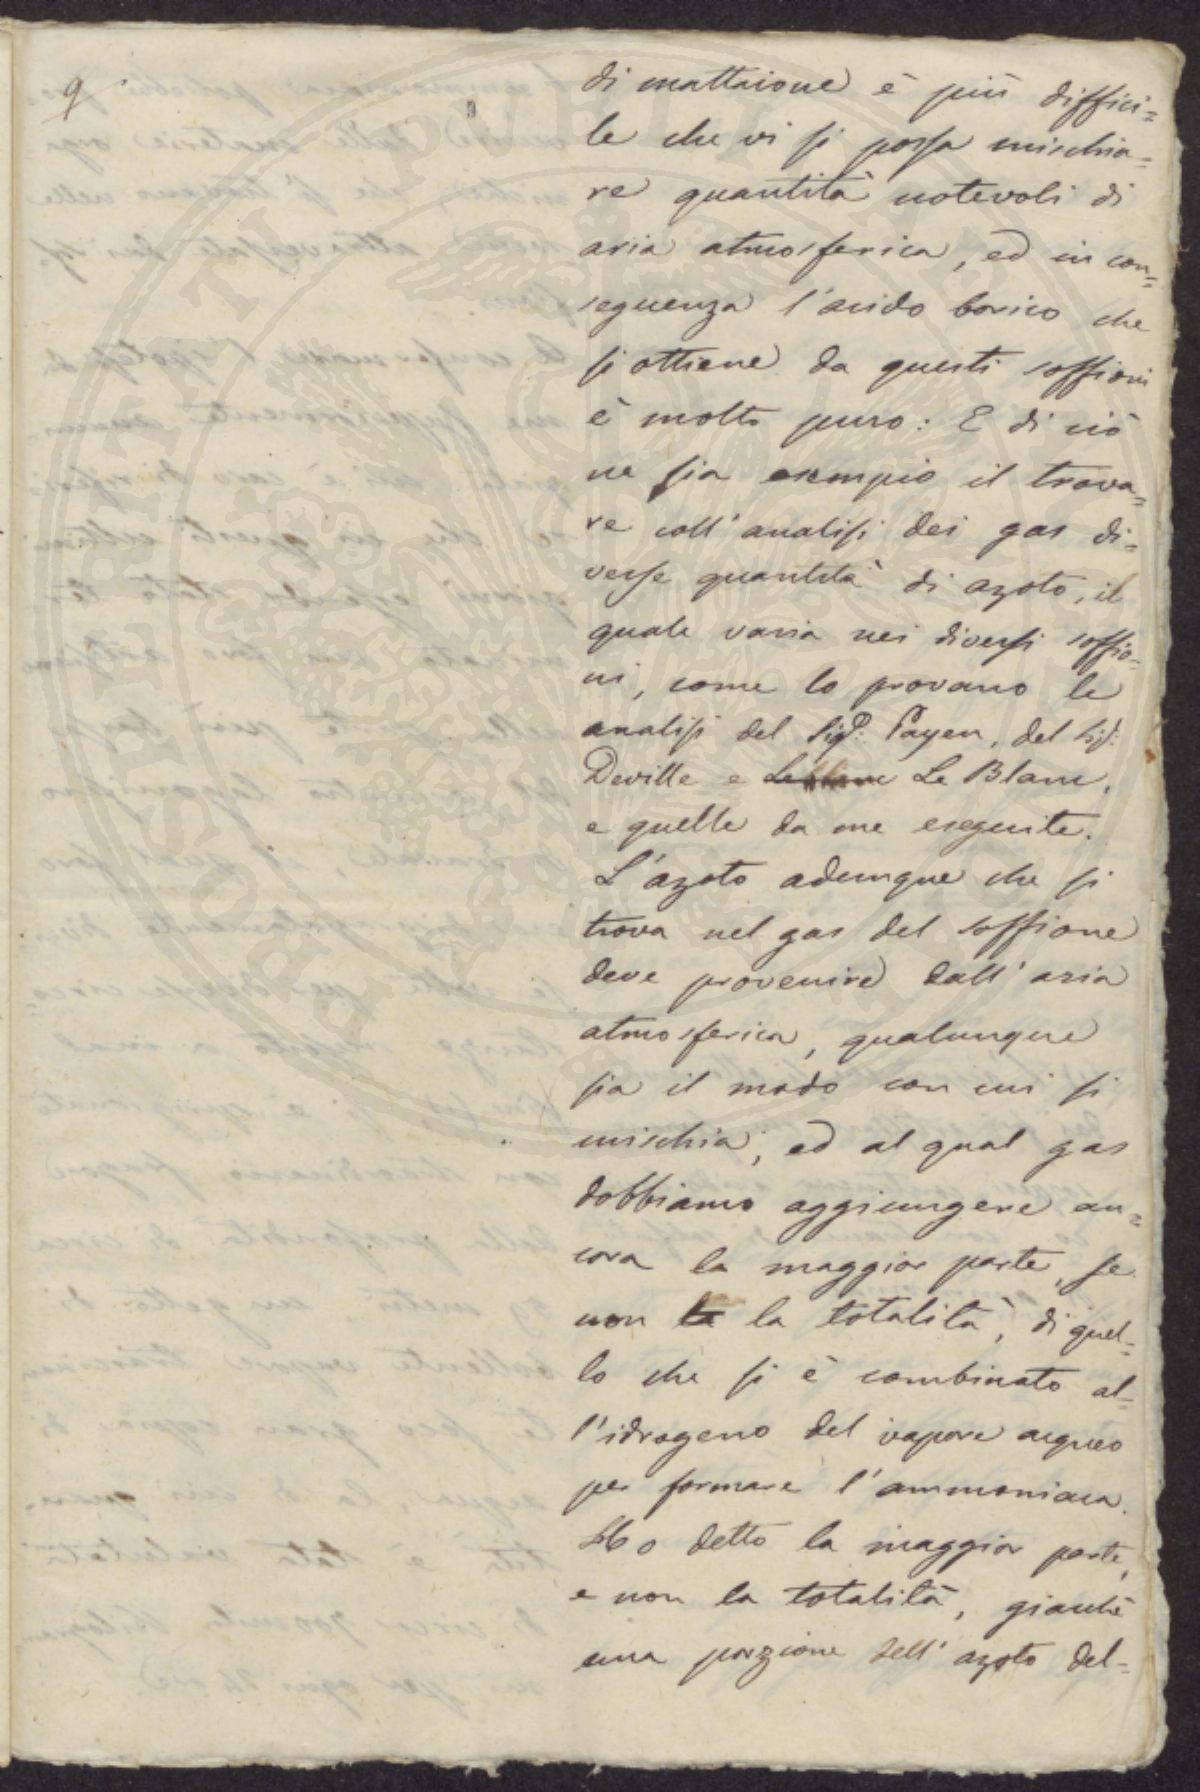 9
di mattaione è più diffici=
le che vi si possa mischia=
re quantità notevoli di
aria atmosferica, ed in con=
seguenza l'acido borico che
si ottiene da questi soffioni
è molto puro: E di ciò
ne sia esempio il trova=
re coll'analisi dei gas di=
verse quantità di azoto, il
quale varia nei diversi soffio=
ni, come lo provano le
analisi del Sig.r Payen, del Sig.r
Deville e Leblanc Le Blanc,
e quelle da me eseguite.
L'azoto adunque che si
trova nel gas del soffione
deve provenire dall'aria
atmosferica, qualunque
sia il modo con cui si
mischia; ed al qual gas
dobbiamo aggiungere an=
cora la maggior parte, se
non la la totalità, di quel=
lo che si è combinato al=
l'idrogeno del vapore acqueo
per formare l'ammoniaca.
Ho detto la maggior parte,
e non la totalità, giacchè
una porzione dell'azoto del=